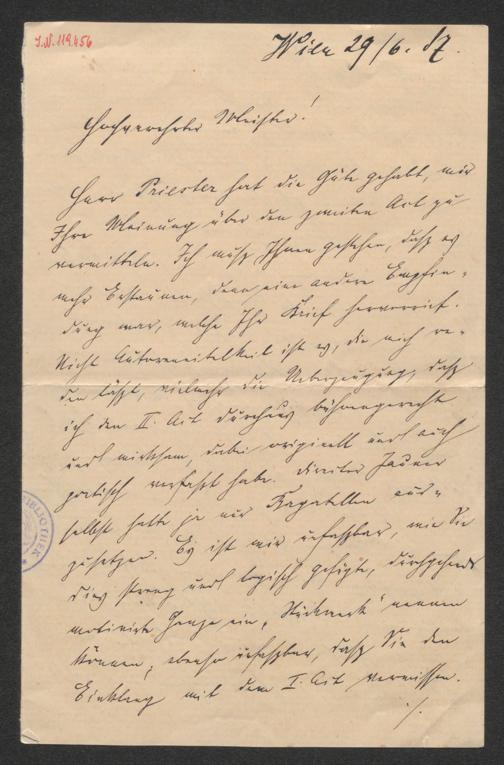 I.N. 119.456
Wien 29/6. 87.
Hochverehrter Meister!
Herr Priester hat die Güte gehabt, mir
Ihre Meinung über den zweiten Act zu
vermitteln. Ich muß Ihnen gestehen, daß es
mehr Erstaunen, denn eine andere Empfin-
dung war, welche Ihr Brief hervorrief.
Nicht Autoreneitelkeit ist es, die mich re-
den läßt, vielmehr die Ueberzeugung, daß
ich den II. Act durchaus bühnengerecht
und wirksam, dabei originell und auch
poetisch verfaßt habe. Director Jauner
selbst hatte ja nur Bagatellen aus-
zusetzen. Es ist mir unfaßbar, wie Sie
dies streng und logisch gefügte, durchgehends
motivirte Ganze ein „Stückwerk" nennen
können, ebenso unfaßbar, daß Sie den
Einklang mit dem I. Act vermissen.
./.
BIBLIOTHEK